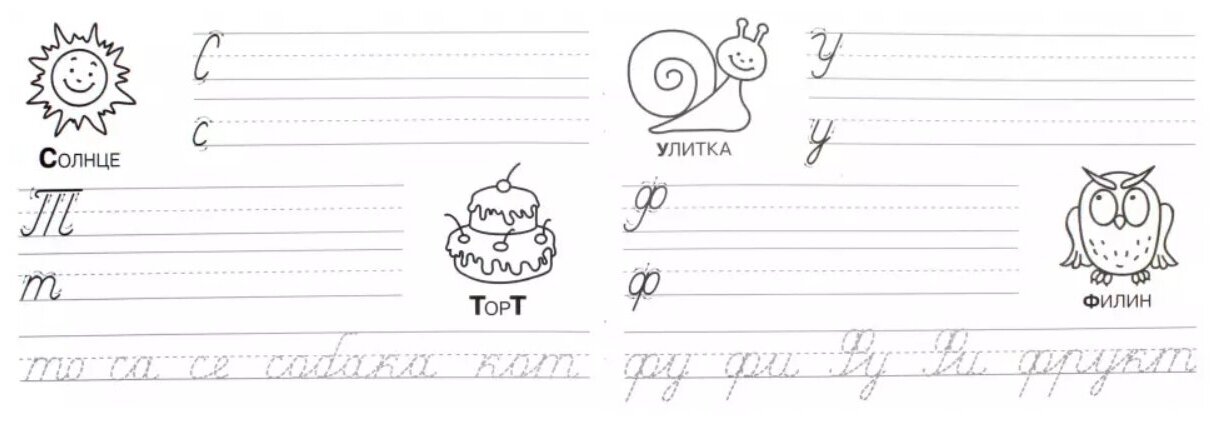 С
с
Солнце
Т
т
ТорТ
то са се собака кот
У
у
улитка
Ф
ф
филин
фу фи Фу Фи фрукт